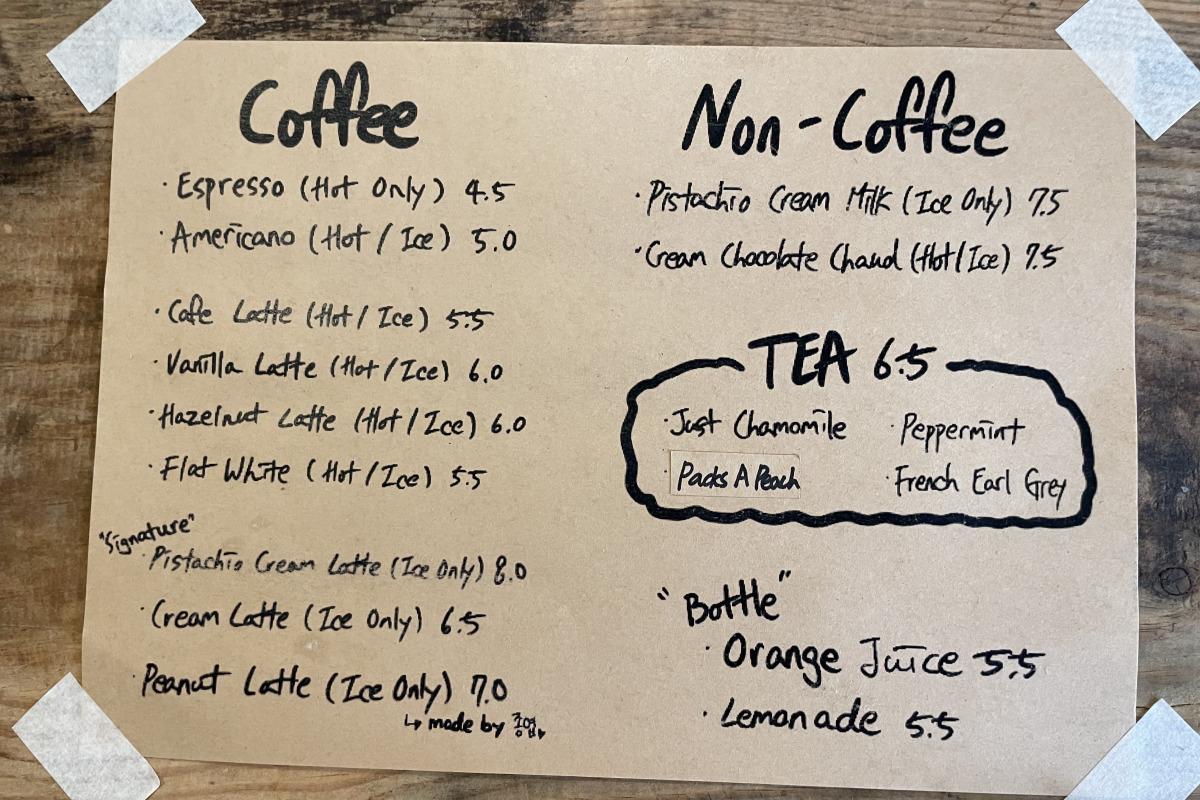 Coffee
· Espresso (Hot Only) 4.5
· Americano (Hot / Ice) 5.0
· Cafe Latte (Hot / Ice) 5.5
· Vanilla Latte (Hot / Ice) 6.0
· Hazelnut Latte (Hot / Ice) 6.0
· Flat White (Hot / Ice) 5.5
"Signature"
· Pistachio Cream Latte (Ice Only) 8.0
· Cream Latte (Ice Only) 6.5
· Peanut Latte (Ice Only) 7.0
↳ made by
Non-Coffee
· Pistachio Cream Milk (Ice Only) 7.5
· Cream Chocolate Chaud (Hot / Ice) 7.5
TEA 6.5
· Just Chamomile · Peppermint
· Packs A Peach · French Earl Grey
"Bottle"
· Orange Juice 5.5
· Lemonade 5.5